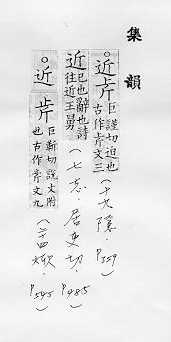 集韻
○近 𣥍 巨謹切迫也
古作𣥍文三 (十九隱. P359)
近 已也辭也詩
往近王舅 (七志. 居吏切. P485)
○近 𣥍 巨靳切說文附
也古作𣥍文九 (二十四焮. P545)